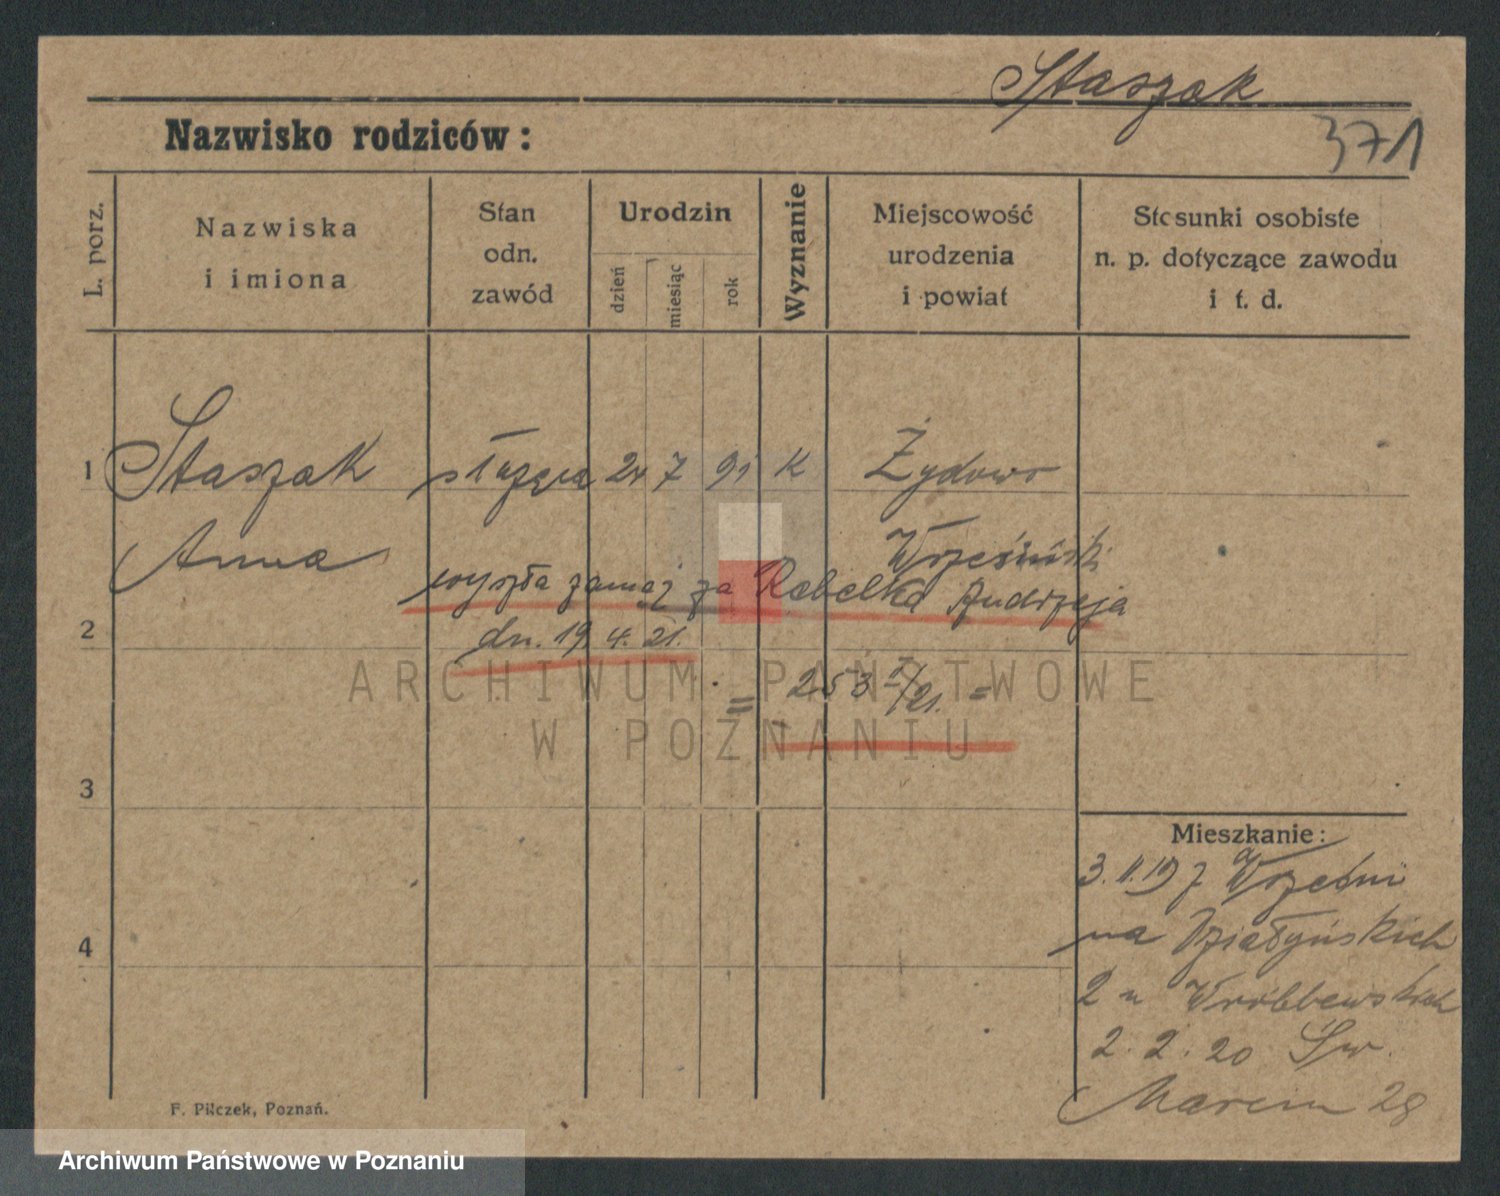 Staszak
Nazwisko rodziców:
371
L. porz.
Nazwiska
i imiona
Stan
odn.
zawód
Urodzin
dzień
miesiąc
rok
Wyznanie
Miejscowość
urodzenia
i powiat
Stosunki osobiste
n. p. dotyczące zawodu
i t. d.
1 Staszak służąca 24 7 91 K Żydowo
Anna Wrzesiński
wyszła zamąż za Rebelka Andrzeja
2 dn. 19. 4. 21.
= 253 I/21. =
ARCHIWUM PAŃSTWOWE
W POZNANIU
3
Mieszkanie:
3. 11. 19 z Wrześni
na Działyńskich
4
2 u
2. 2. 20 Św.
Marcin 28
F. Pilczek, Poznań.
Archiwum Państwowe w Poznaniu